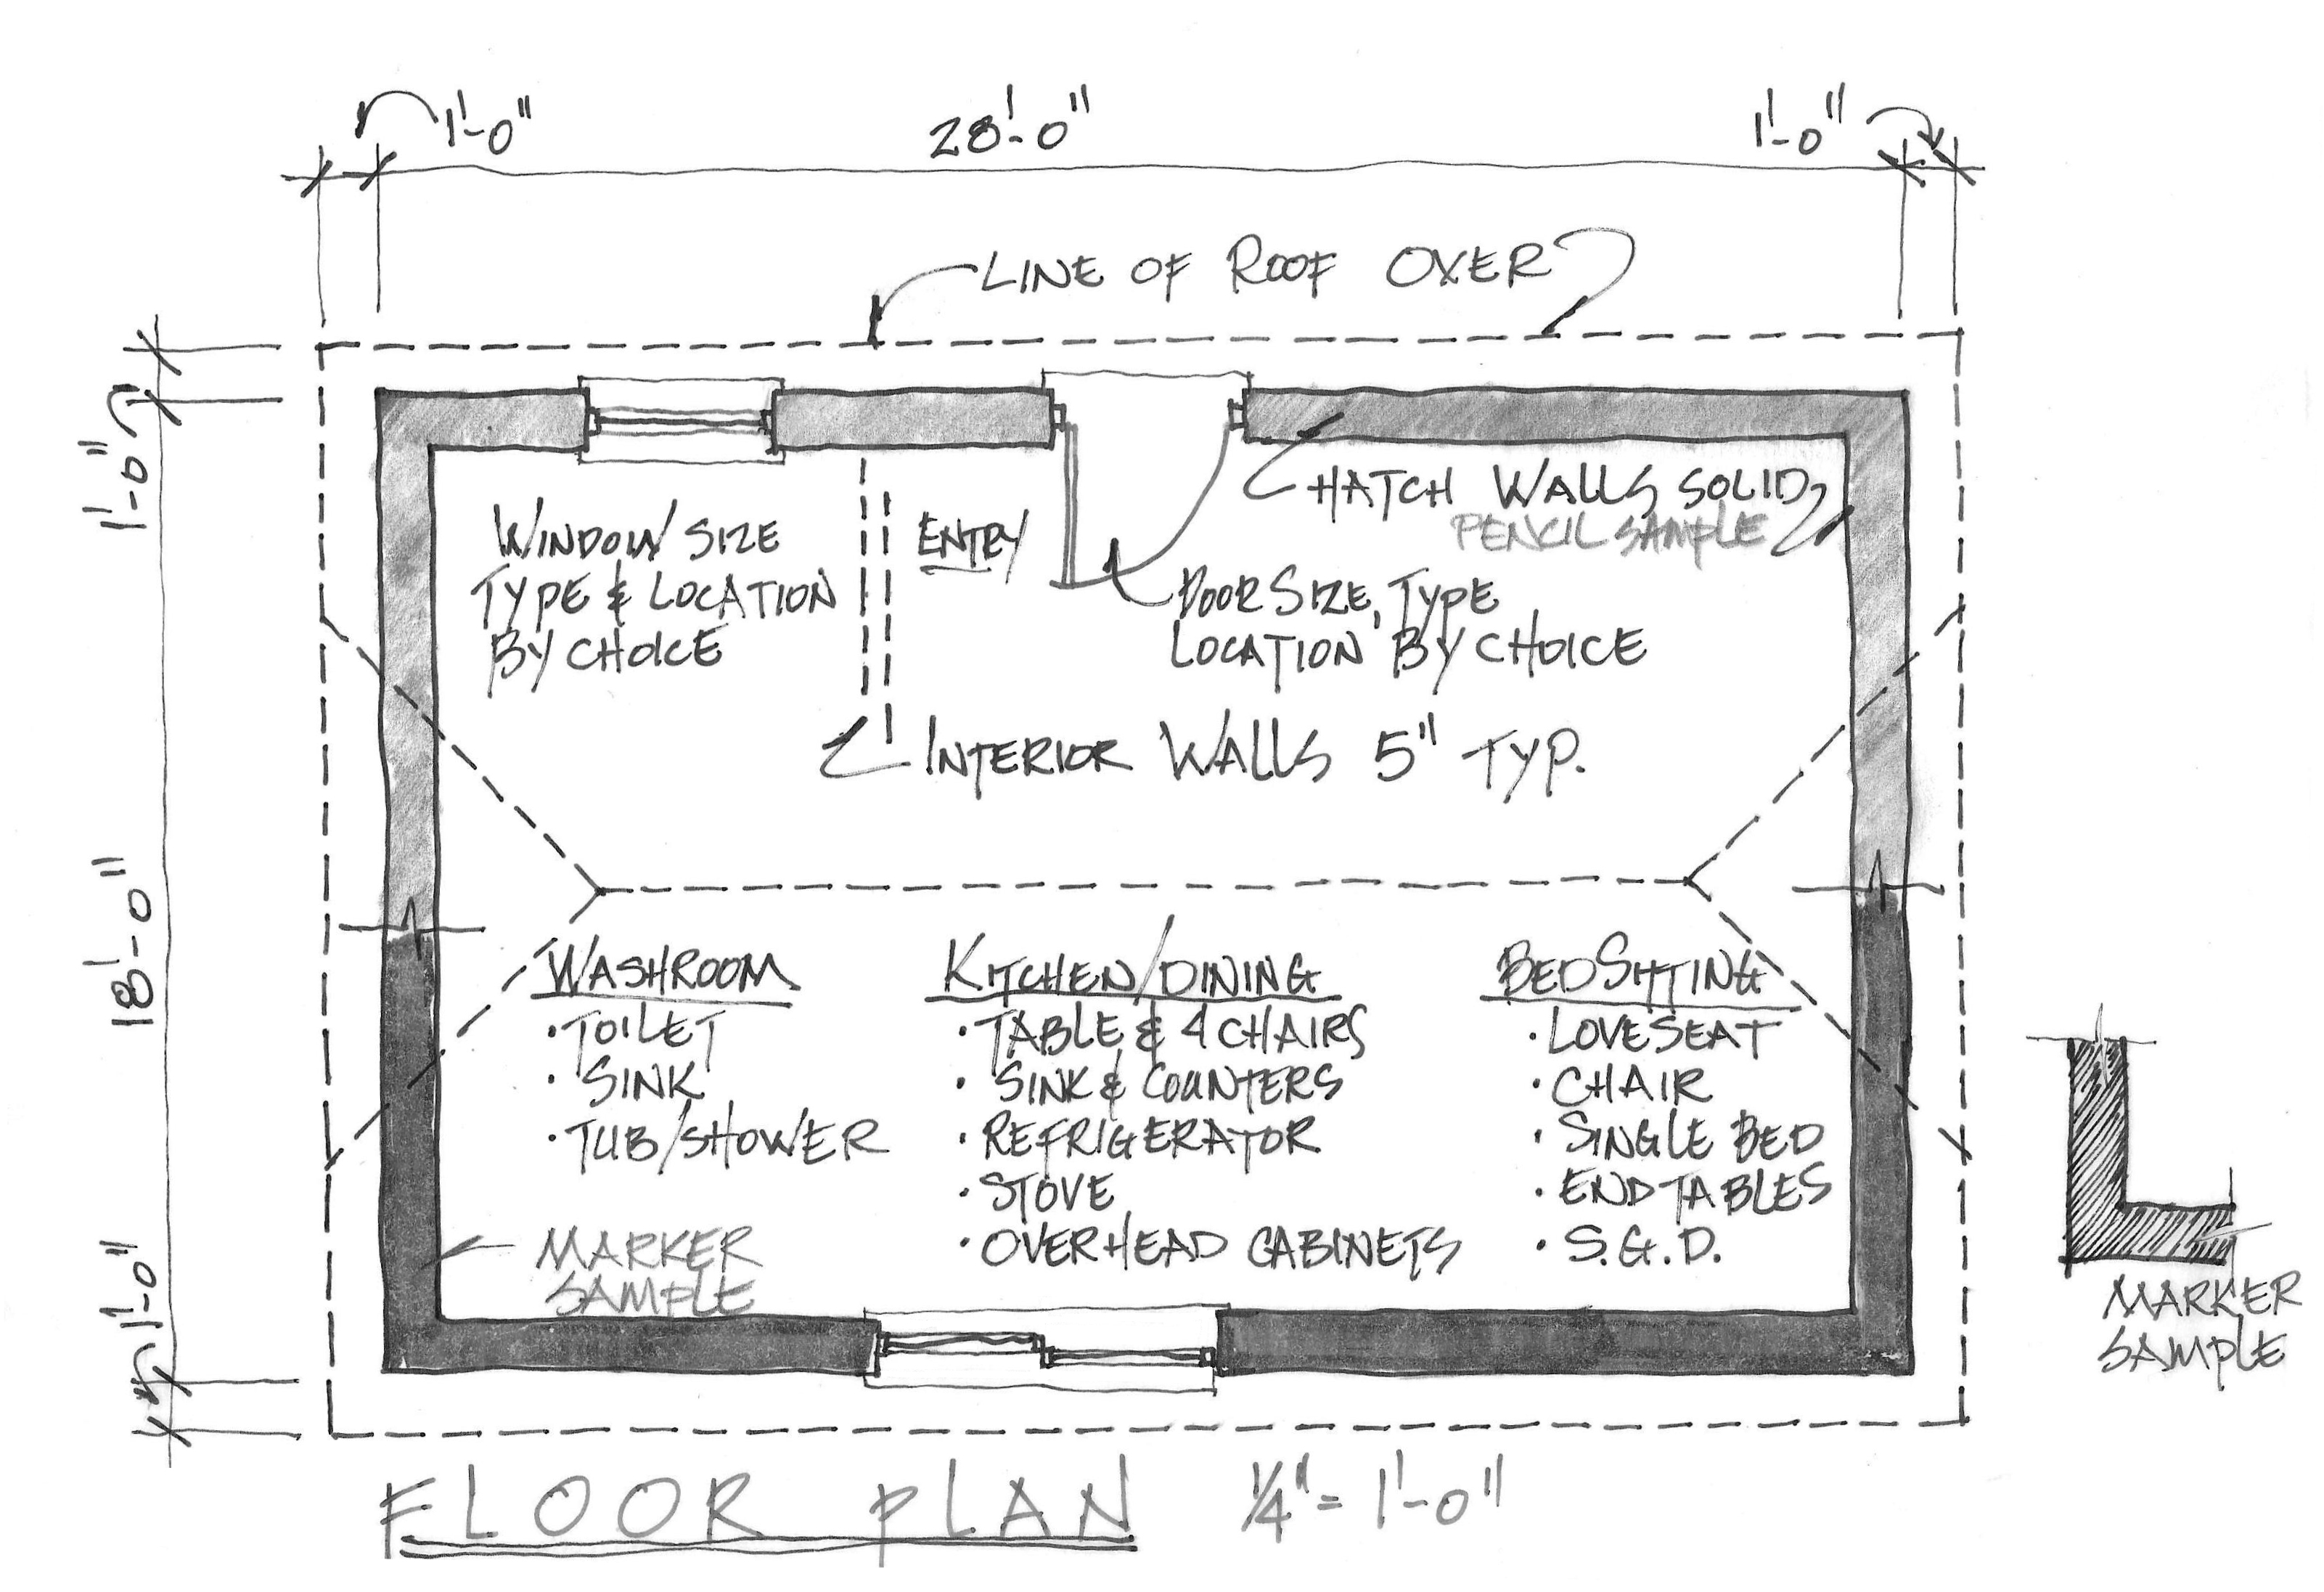 1'-0"
28'-0"
1'-0"
LINE OF ROOF OVER
1'-0"
HATCH WALLS SOLID
PENCIL SAMPLE
WINDOW SIZE
TYPE & LOCATION
BY CHOICE
ENTRY
DOOR SIZE, TYPE
LOCATION BY CHOICE
INTERIOR WALLS 5" TYP.
18'-0"
WASHROOM
• TOILET
• SINK
• TUB/SHOWER
KITCHEN/DINING
• TABLE & 4 CHAIRS
• SINK & COUNTERS
• REFRIGERATOR
• STOVE
• OVERHEAD CABINETS
BEDSITTING
• LOVESEAT
• CHAIR
• SINGLE BED
• END TABLES
• S.G.D.
MARKER
SAMPLE
1'-0"
MARKER
SAMPLE
FLOOR PLAN 1/4" = 1'-0"